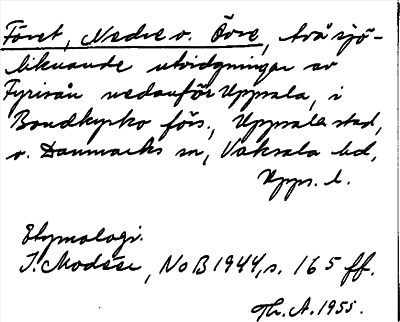 Föret, Nedre o. Övre, två sjö-
liknande utvidgningar av
Fyrisån nedanför Uppsala, i
Bondkyrko förs., Uppsala stad,
o. Danmarks sn, Vaksala hd,
Upps. l.
Etymologi.
I. Modéer, NoB 1944, s. 165 ff.
Th. A. 1955.